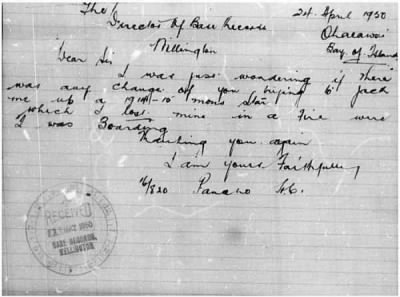 The
24 April 1950
Director Of Base Records
Ohaeawai
Wellington
Bay of Islands
Dear Sir
I was just wondering if there
was any change of you trying to jack
me up a 1914-15 mons Star
which I lost mine in a Fire were
I was Boarding
Thanking you again
I am yours Faithfully
16/820 H.C.
RECEIVED
1950
BASE RECORDS,
WELLINGTON